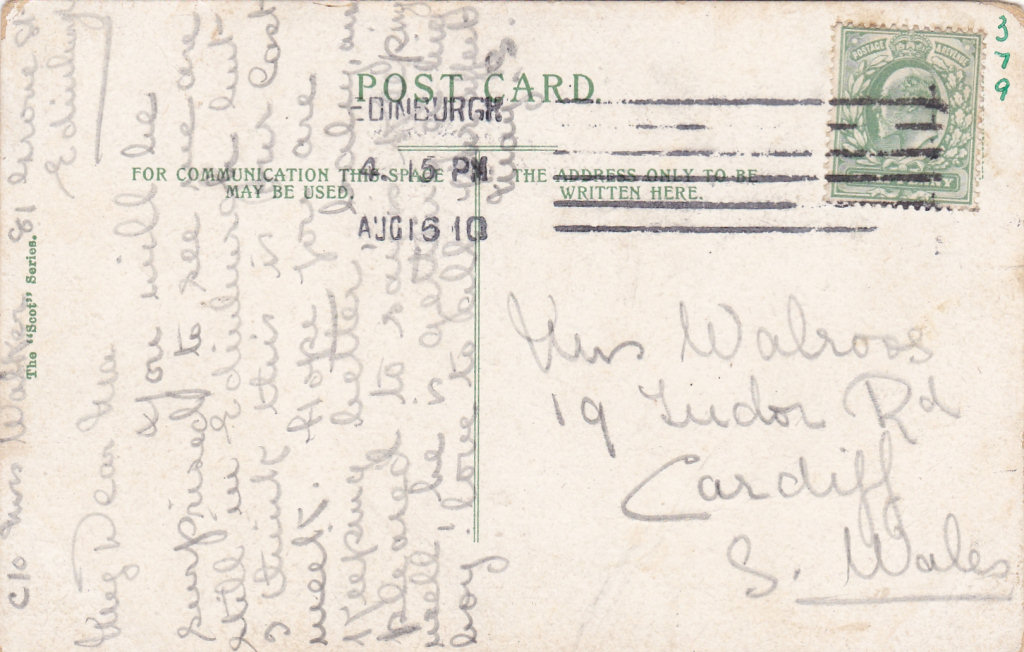 POST CARD
FOR COMMUNICATION THIS SPACE
MAY BE USED.
THE ADDRESS ONLY TO BE
WRITTEN HERE.
EDINBURGH
4. 15 PM
AUG 16 10
POSTAGE REVENUE
PENNY
379
The "Scot" Series.
C/o Mrs Walker 81
St
Edinburgh
My Dear
You will be
surprised to see we are
still in Edinburgh but
I think this is our last
week. Hope you are
keeping better Lally, am
pleased to say
well, he is getting a big
boy, love to all
Walroos
19 Tudor Rd
Cardiff
S. Wales